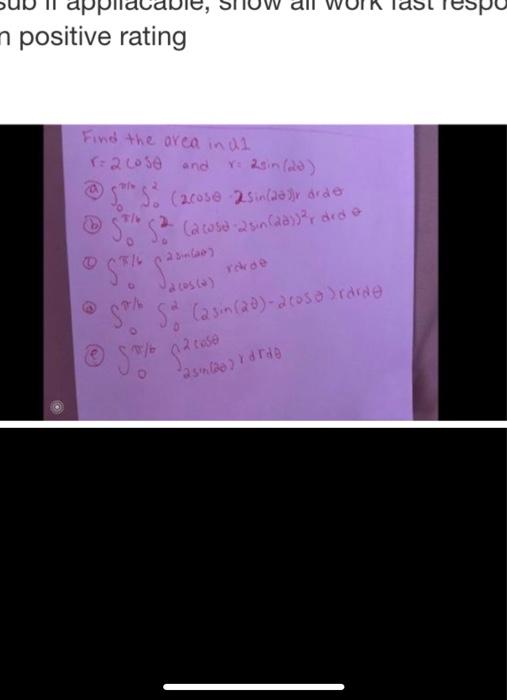 n positive rating
Find the area in Q1
r=2cosθ and r= 2sin(2θ)
(a) ∫₀^π/6 ∫₀^2 (2cosθ-2sin(2θ))r drdθ
(b) ∫₀^π/6 ∫₀^2 (2cosθ-2sin(2θ))²r drdθ
(c) ∫₀^π/6 ∫_2cos(θ)^2sin(2θ) rdrdθ
∫₀^π/6 ∫₀^2 (2sin(2θ)-2cosθ)rdrdθ
(e) ∫₀^π/6 ∫_2sin(2θ)^2cosθ rdrdθ